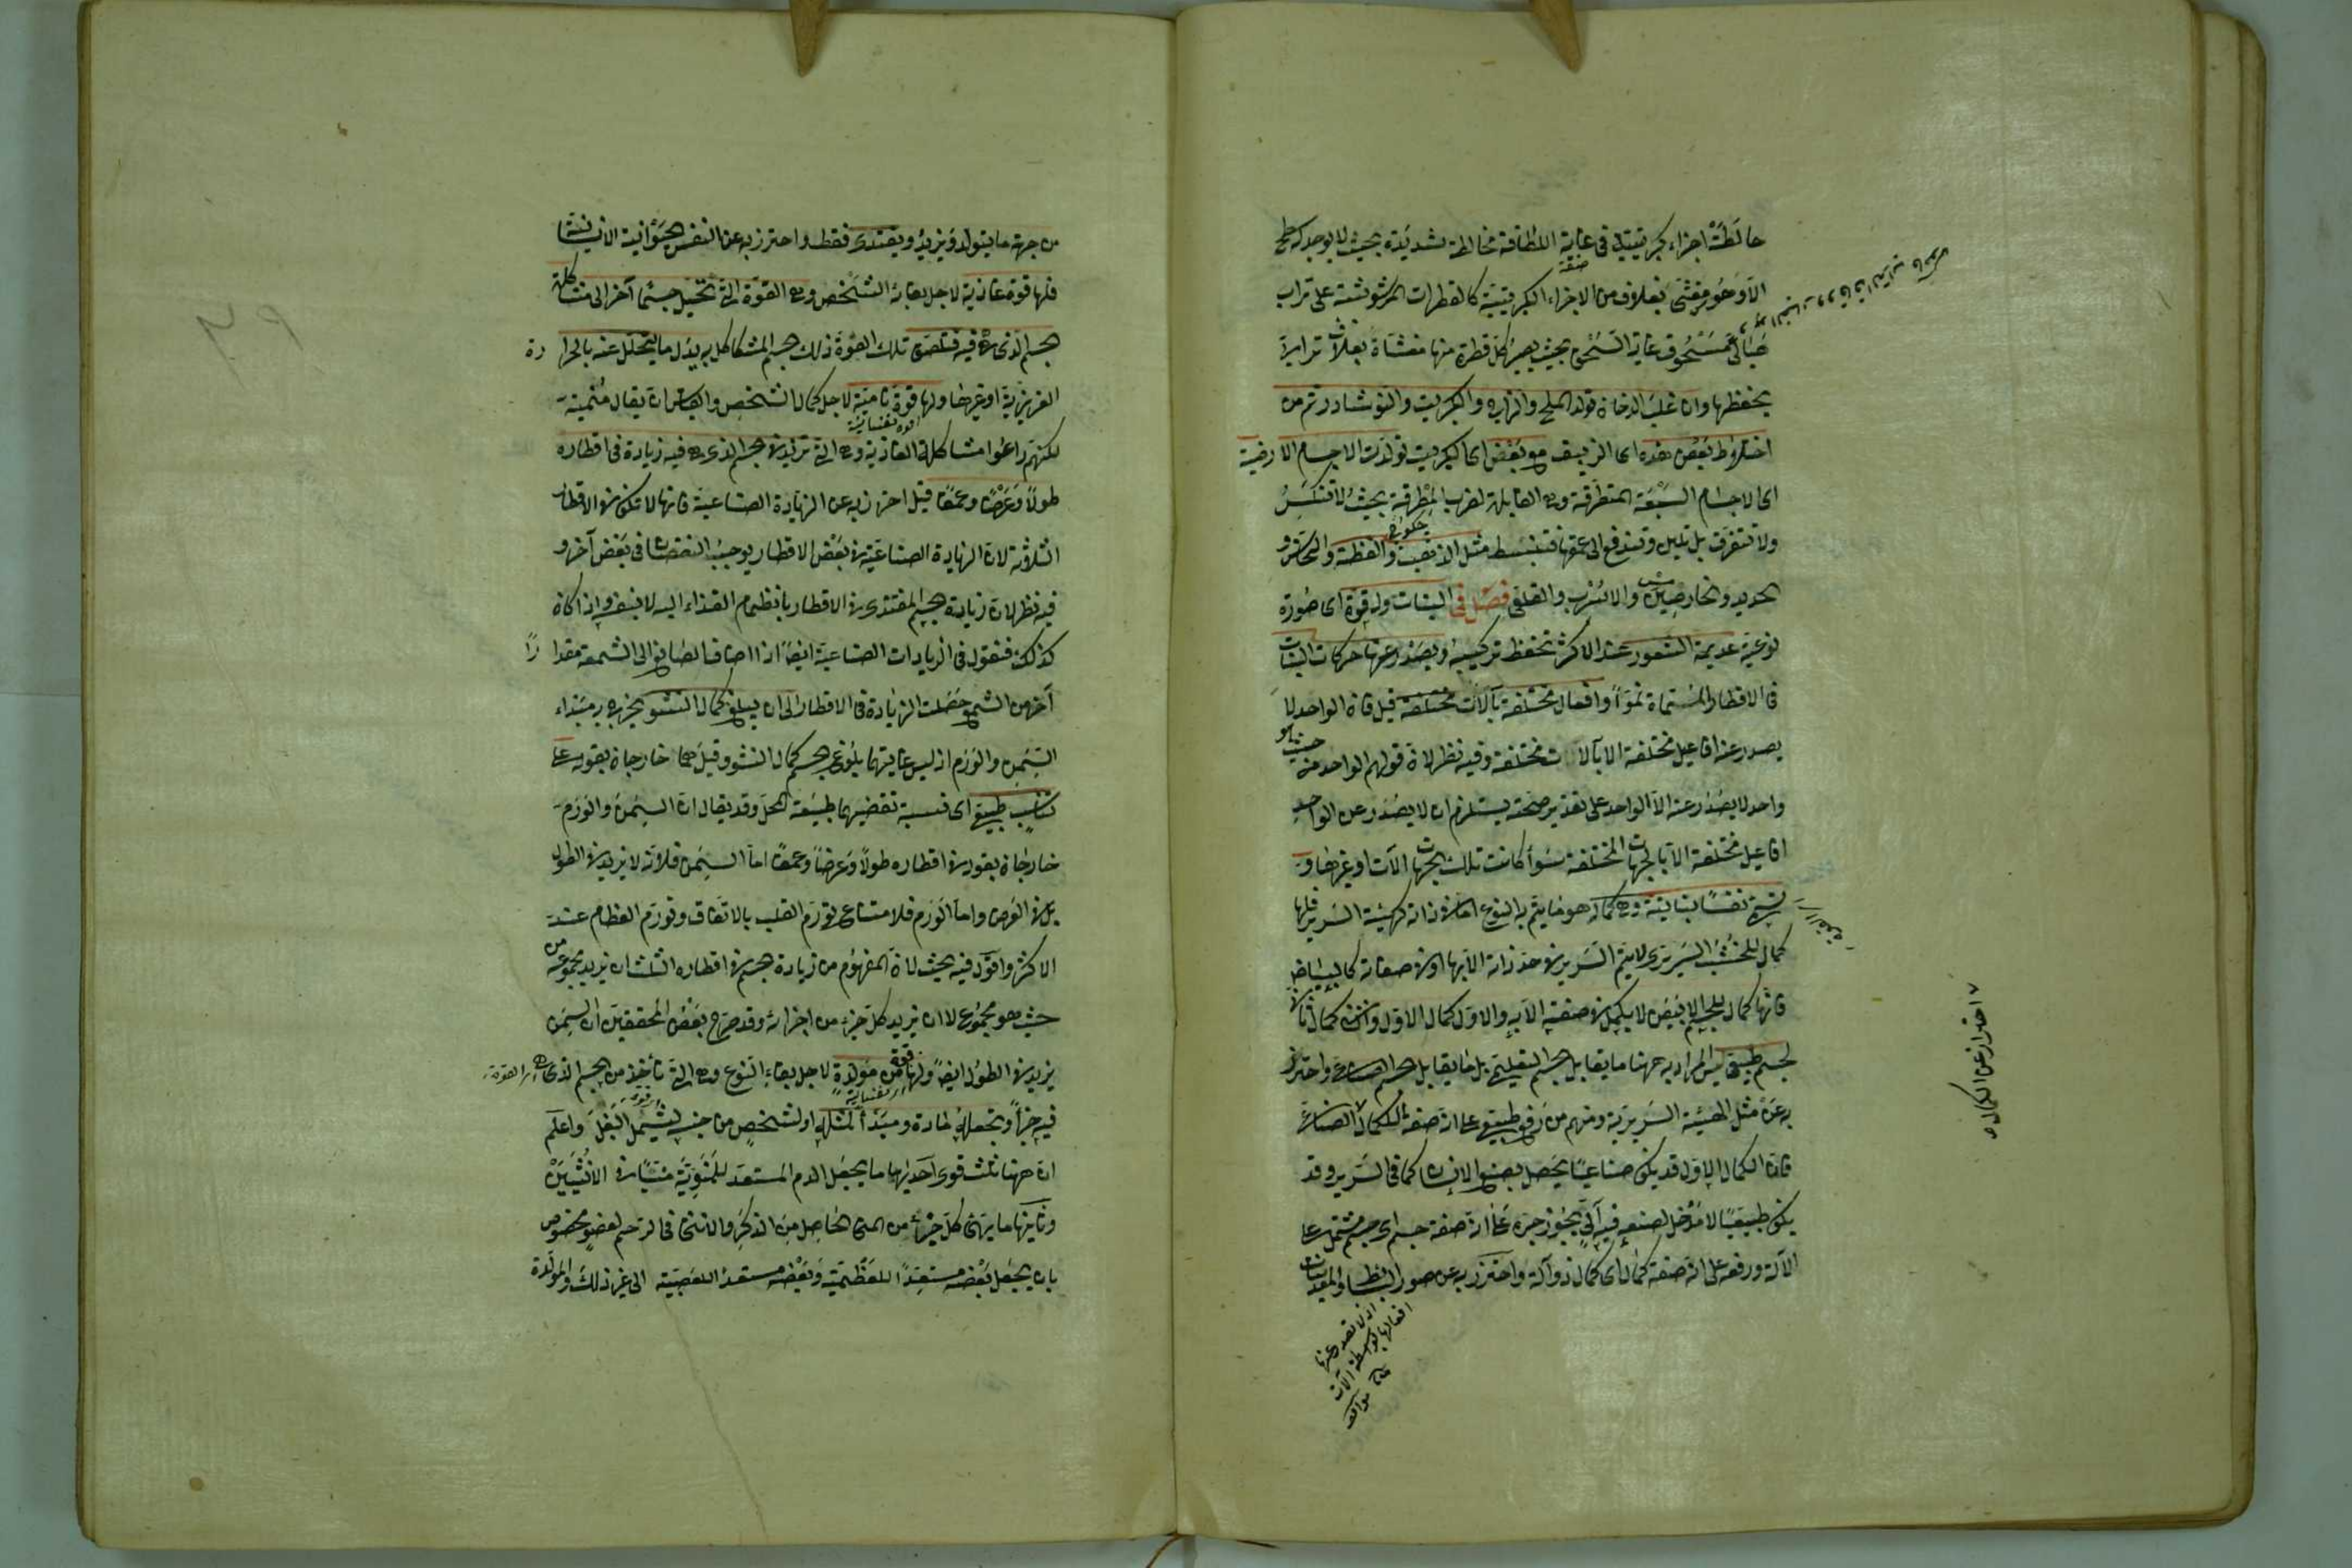 خالطت اجزاء كبريتية في غاية اللطافة مخالطة شديدة بحيث لا يوجد له سطح
الا وهو مغشى بغلاف من الاجزاء الكبريتية كالقطرات المرشوشة على تراب
هبائي مسحوق غاية السحق بحيث يصير كل قطرة منها مغشاة بغلاف ترابية
يحفظها وان غلب الدخان تولد الملح والزاج والكبريت والنوشادر ثم من
اختلاط بعض هذه اى الزيبق مع بعض اى الكبريت تولدت الاجسام الارضية
اى الاجسام السبعة المتطرقة وهى القابلة لضرب المطرقة بحيث لا تنكسر
ولا تتفرق بل تلين وتندفع الى عمقها فتنبسط مثل الذهب والفضة والنحاس و
الحديد والخارصين والاسرب والقلعى فصل في النبات وله قوة اى صورة
نوعية عديمة الشعور عند الاكثر تحفظ تركيبه ويصدر عنها حركات النبات
في الاقطار المسماة نموا وافعال مختلفة بآلات مختلفة قيل فان الواحد لا
يصدر عنه افاعيل مختلفة الا بآلات مختلفة وفيه نظر لان قولهم الواحد من حيث هو
واحد لا يصدر عنه الا الواحد على تقدير صحته يستلزم ان لا يصدر عن الواحد
افاعيل مختلفة الا بالجهات المختلفة سواء كانت تلك الجهات الآت او غيرها و
تسمى نفسا نباتية وهى كمال هو ما يتم به النوع اما في ذاته كهيئة السرير فانها
كمال للخشب السريرى لا يتم السرير في حد ذاته الا بها او في صفاته كالبياض
فانه كمال للجسم الابيض لا يكمل في صفته الا به والاول كمال الاول والثاني كمال ثان
لجسم طبيعى ليس المراد به ههنا ما يقابل الجسم التعليمى بل ما يقابل الجسم الصناعى واحترز
به عن مثل الهيئة السريرية ومنهم من رفع طبيعى على انه صفة للكمال الصناعى
فان الكمال الاول قد يكون صناعيا يحصل بصنع الانسان كما في السرير وقد
يكون طبيعيا لا مدخل لصنعه فيه آلى يجوز جره على انه صفة جسم اى جسم مشتمل على
الآلة ورفعه على انه صفة كمال اى كمال ذو آلة واحترز به عن صور البسائط والمعدنيات
اذ لا تصدر عنها
افعالها بواسطة الآت
احتراز عن الكمال
من جهة ما يتولد ويزيد ويغتذى فقط واحترز به عن النفس الحيوانية الانسانية
فلها قوة غاذية لاجل بقاء الشخص وهى القوة التى تحيل جسما آخر الى مشاكلة
الجسم الذى هى فيه فتلصق تلك القوة ذلك الجسم المشاكل به بدل ما يتحلل عنه بالحرارة
الغريزية او غيرها ولها قوة نامية لاجل كمال الشخص والقياس ان يقال منمية
لكنهم راعوا مشاكلة الغاذية وهى التى تزيد في الجسم الذى هى فيه زيادة في اقطاره
طولا وعرضا وعمقا قيل احترز به عن الزيادة الصناعية فانها لا تكون في الاقطار
الثلاثة لان الزيادة الصناعية في بعض الاقطار يوجب النقصان في بعض آخر و
فيه نظر لان زيادة الجسم المغتذى في الاقطار بانضمام الغذاء اليه لا بنفسه واذا كان
كذلك فنقول في الزيادات الصناعية ايضا اذا اضاف الصانع الى الشمعة مقدارا
آخر من الشمع حصلت الزيادة في الاقطار الى ان يبلغ كمال النشو يخرج به مبداء
السمن والورم اذ ليس غايتهما بلوغ الجسم كمال النشو وقيل هما خارجان بقوله على
تناسب طبيعى اى نسبة تقتضيها طبيعة المحل وقد يقال ان السمن والورم
خارجان بقوله في اقطاره طولا وعرضا وعمقا اما السمن فلانه لا يزيد في الطول
بل في العرض واما الورم فلامتناع تورم القلب بالاتفاق وتورم العظام عند
الاكثر واقول فيه بحث لان المفهوم من زيادة الجسم في اقطاره الثلث ان يزيد مجموعه من
حيث هو مجموع لا ان يزيد كل جزء من اجزائه وقد صرح بعض المحققين ان السمن
يزيد في الطول ايضا ولها قوة مولدة لاجل بقاء النوع وهى التى تأخذ من الجسم الذى هى
فيه جزأ وتجعله مادة ومبدأ لمثله او لشخص من جنسه ليشمل البغل واعلم
ان ههنا ثلث قوى احديها ما يجعل الدم المستعد للمنوية منيا في الانثيين
وثانيتها ما يهئ كل جزء من المنى الحاصل من الذكر والانثى في الرحم لعضو مخصوص
بان يجعل بعضه مستعدا للعظمية وبعضه مستعدا للعصبية الى غير ذلك والمولدة